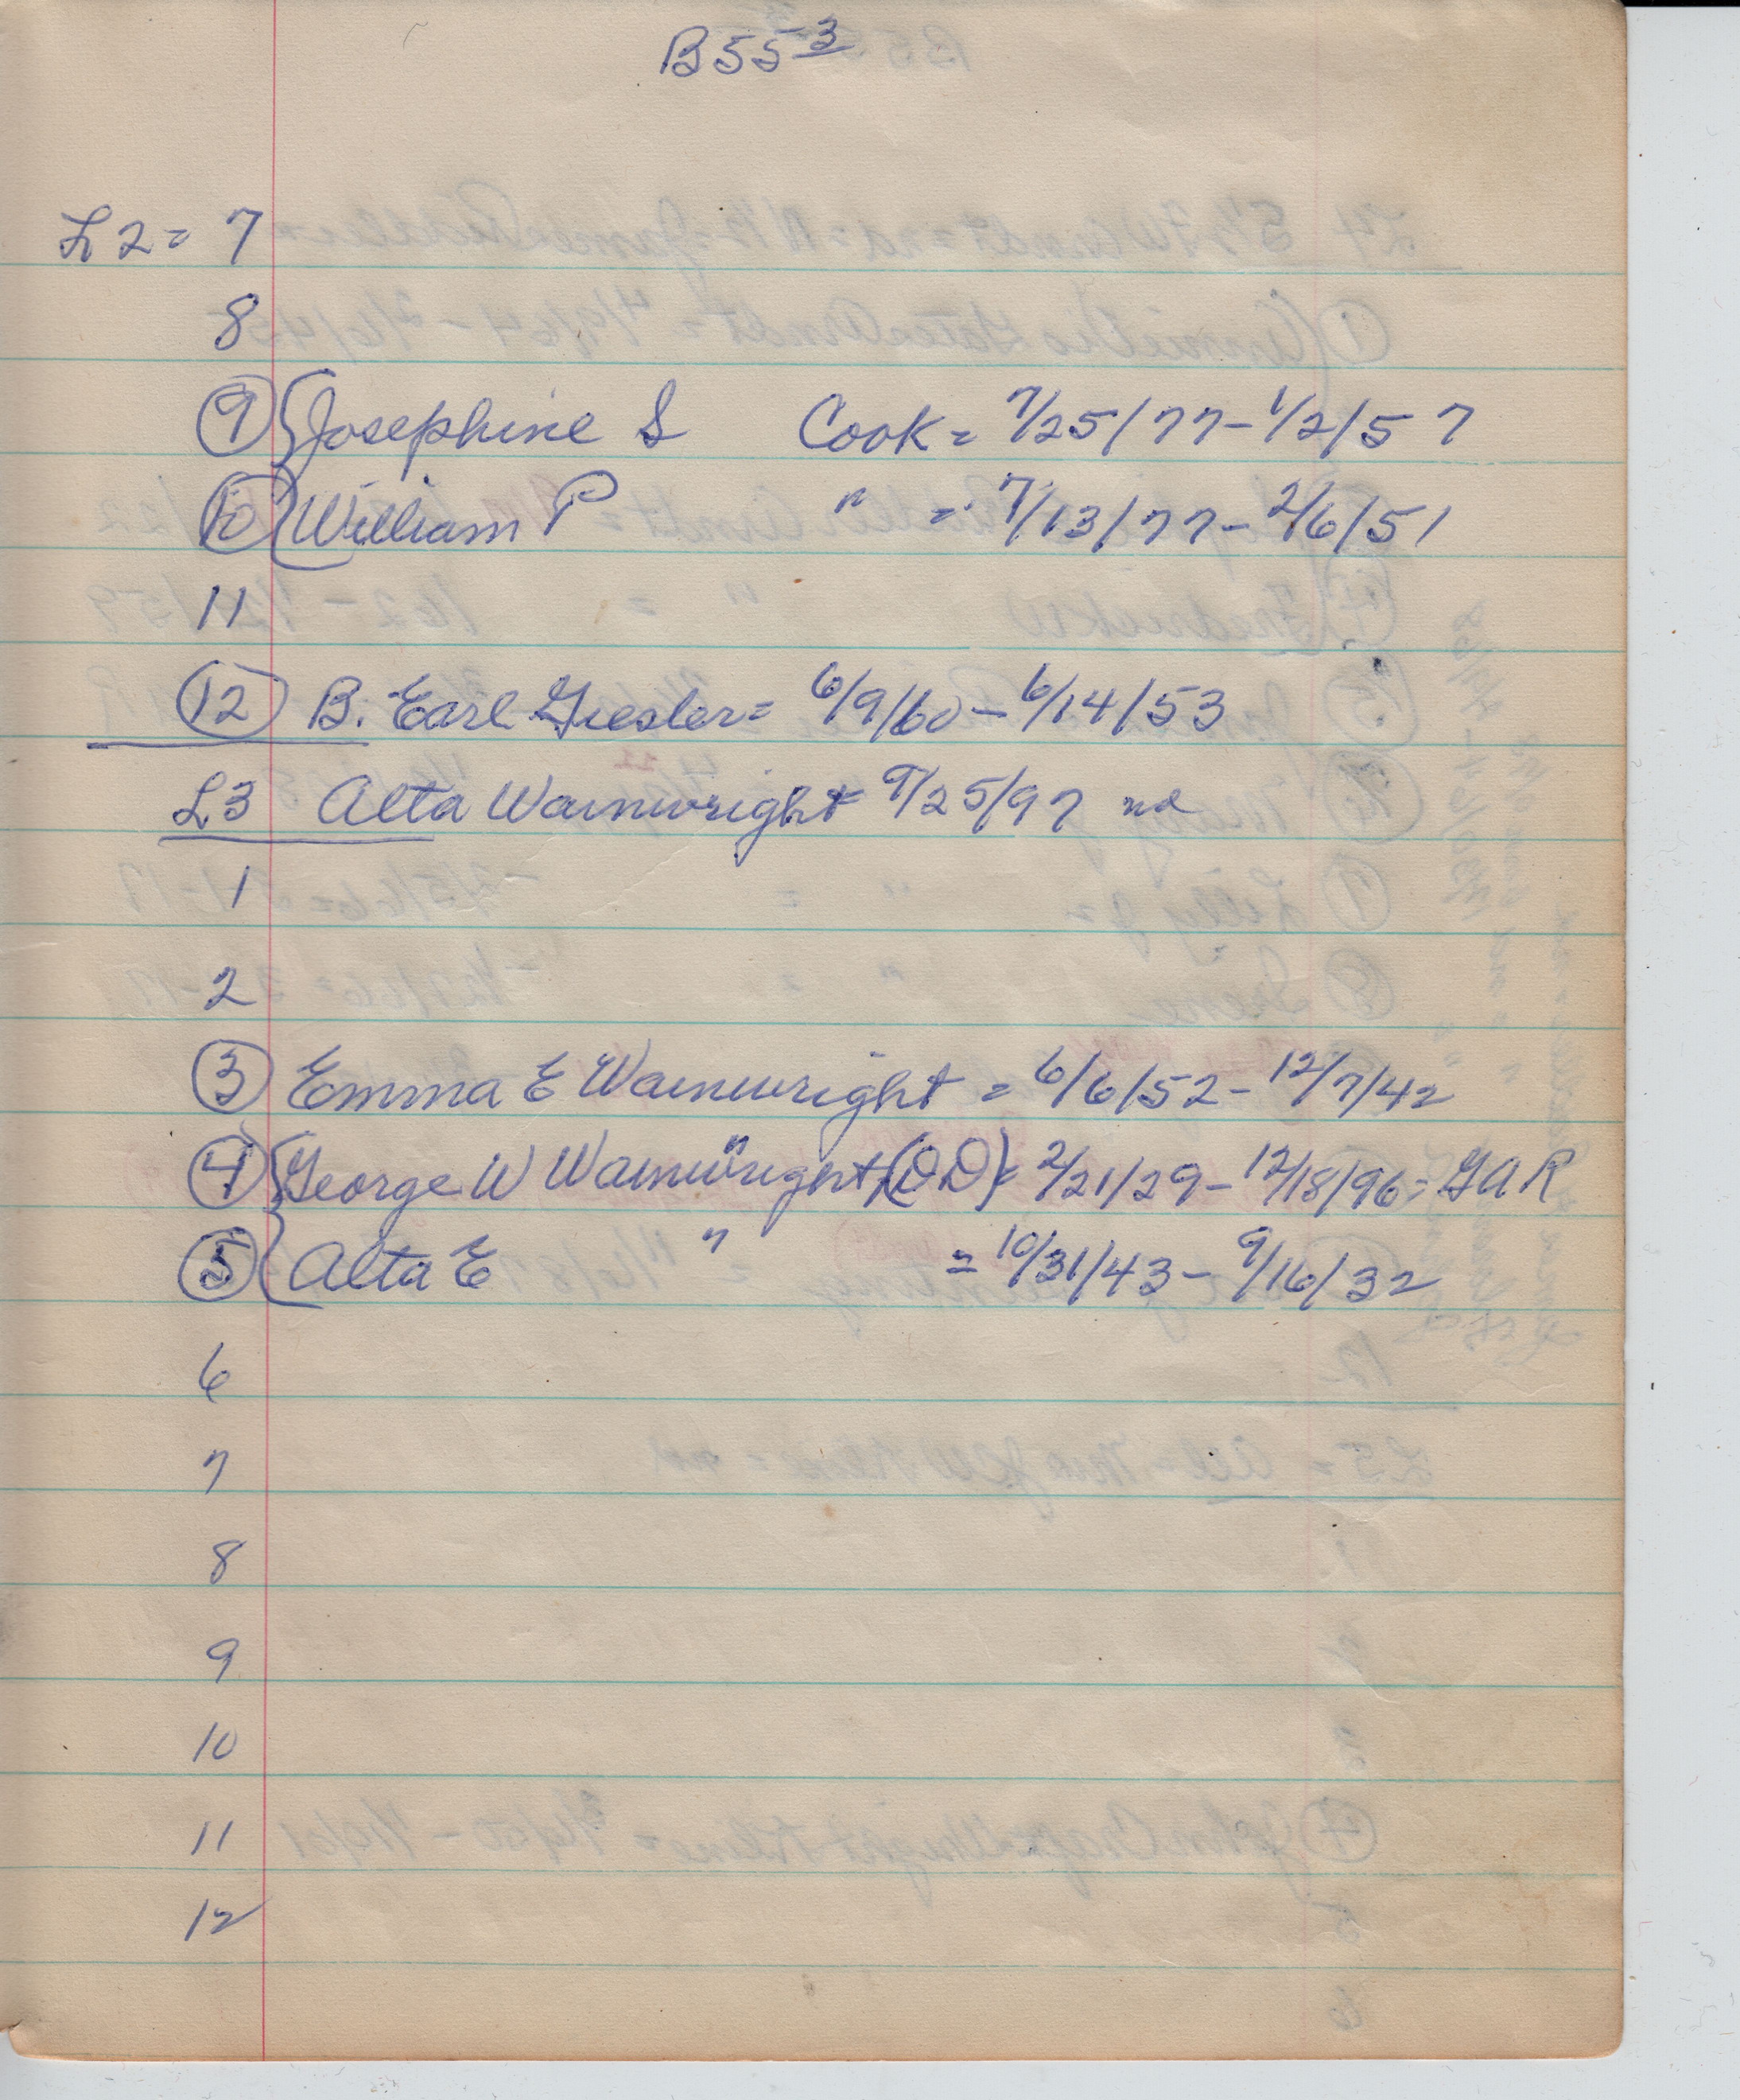 B55 3
L2 = 7
8
9 Josephine S Cook = 7/25/77 - 1/2/57
10 William P " = 7/13/77 - 2/6/51
11
12 B. Earl Giesler = 6/9/60 - 6/14/53
L3 Alta Wainwright = 9/25/97 nd
1
2
3 Emma E Wainwright = 6/6/52 - 12/7/42
4 George W Wainwright (DD) = 2/21/29 - 12/18/96 = GAR
5 Alta E " = 10/31/43 - 9/16/32
6
7
8
9
10
11
12